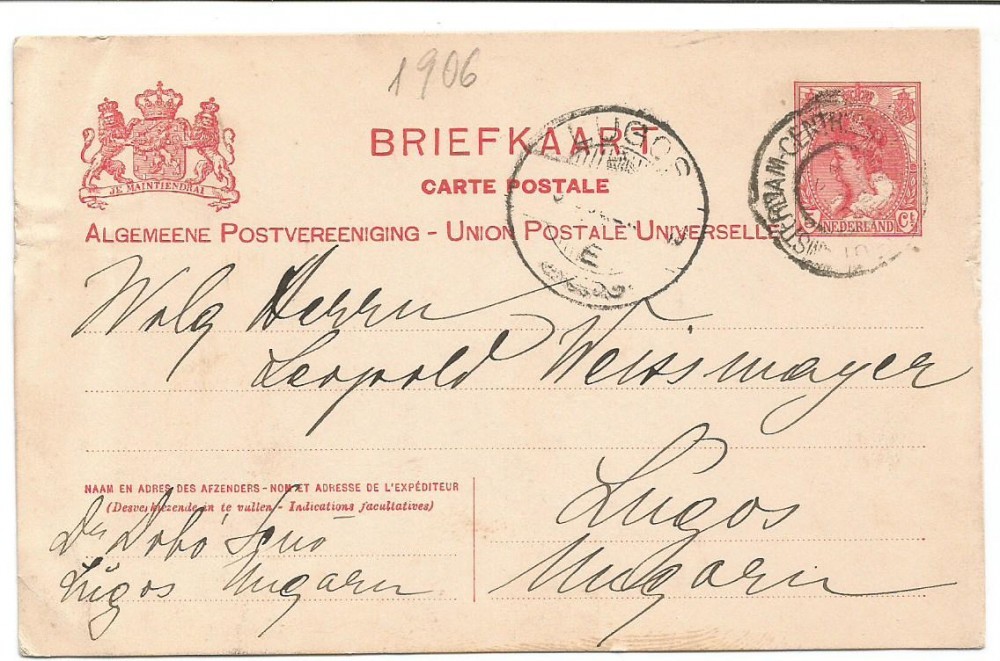 1906
JE MAINTIENDRAI
BRIEFKAART
CARTE POSTALE
ALGEMEENE POSTVEREENIGING - UNION POSTALE UNIVERSELLE
LUGOS
AMSTERDAM-CENTR
NEDERLAND
Herrn
Leopold Weissmayer
Lugos
Ungarn
NAAM EN ADRES DES AFZENDERS - NOM ET ADRESSE DE L'EXPÉDITEUR
(Desverkiezende in te vullen - Indications facultatives)
Dr Dobó Jenö
Lugos Ungarn